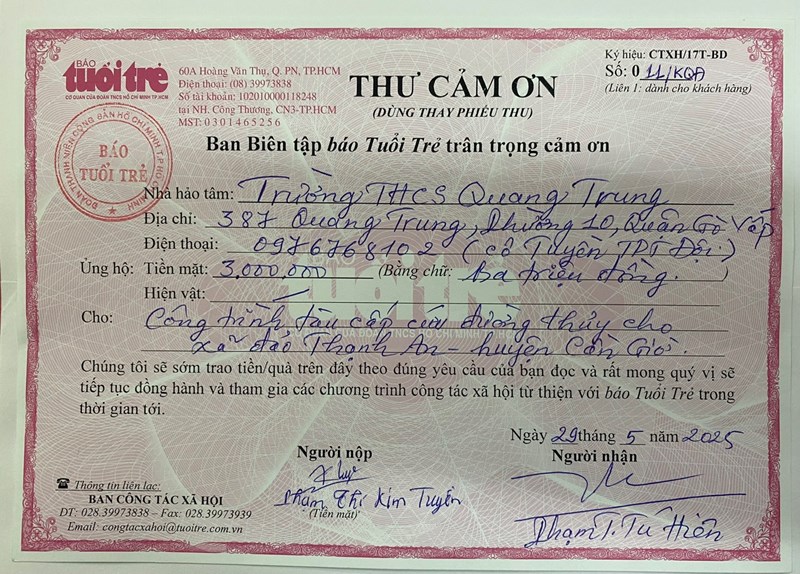 BÁO
tuổi trẻ
CƠ QUAN CỦA ĐOÀN TNCS HỒ CHÍ MINH TP.HCM
60A Hoàng Văn Thụ, Q. PN, TP.HCM
Điện thoại: (08) 39973838
Số tài khoản: 102010000118248
tại NH. Công Thương, CN3-TP.HCM
MST: 0301465256
THƯ CẢM ƠN
(DÙNG THAY PHIẾU THU)
Ký hiệu: CTXH/17T-BD
Số: 0 11/KQA
(Liên 1: dành cho khách hàng)
Ban Biên tập báo Tuổi Trẻ trân trọng cảm ơn
BÁO
TUỔI TRẺ
Nhà hảo tâm: Trường THCS Quang Trung
Địa chỉ: 387 Quang Trung, Phường 10, Quận Gò Vấp
Điện thoại: 0976768102 (cô Tuyền TPT Đội)
Ủng hộ: Tiền mặt: 3.000.000 (Bằng chữ: Ba triệu đồng.)
Hiện vật:
Cho: Công trình tàu cấp cứu đường thủy cho
xã đảo Thạnh An - huyện Cần Giờ.
Chúng tôi sẽ sớm trao tiền/quà trên đây theo đúng yêu cầu của bạn đọc và rất mong quý vị sẽ
tiếp tục đồng hành và tham gia các chương trình công tác xã hội từ thiện với báo Tuổi Trẻ trong
thời gian tới.
Ngày 29 tháng 5 năm 2025
Người nộp
Người nhận
Phạm Thị Kim Tuyền
(Tiền mặt)
Phạm T. Tú Hiên
Thông tin liên lạc:
BAN CÔNG TÁC XÃ HỘI
ĐT: 028.39973838 – Fax: 028.39973939
Email: congtacxahoi@tuoitre.com.vn